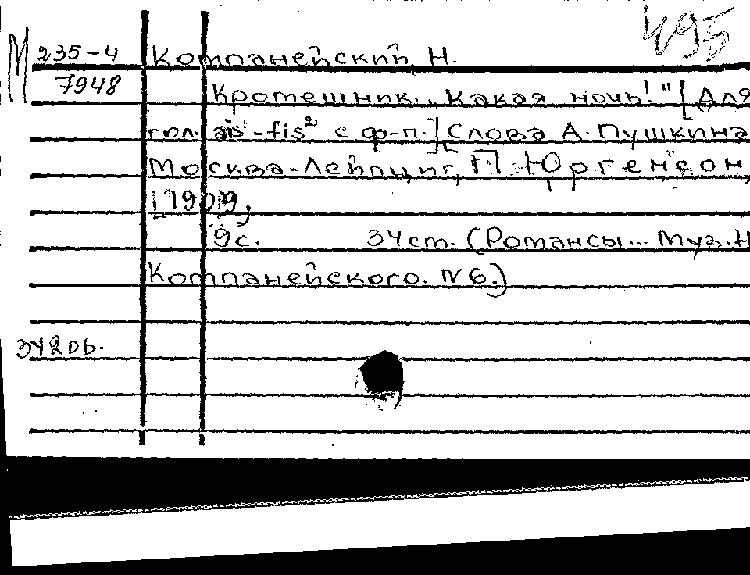 495
М 235-4 Компанейский, Н.
7948 Кромешник. „Какая ночь!" [Для
гол. ais¹-fis² с ф-п.] Слова А. Пушкина
Москва-Лейпциг, П. Юргенсон,
[1909],
9с. 34 cm. (Романсы... Муз. Н
Компанейского. №6.)
342 об.